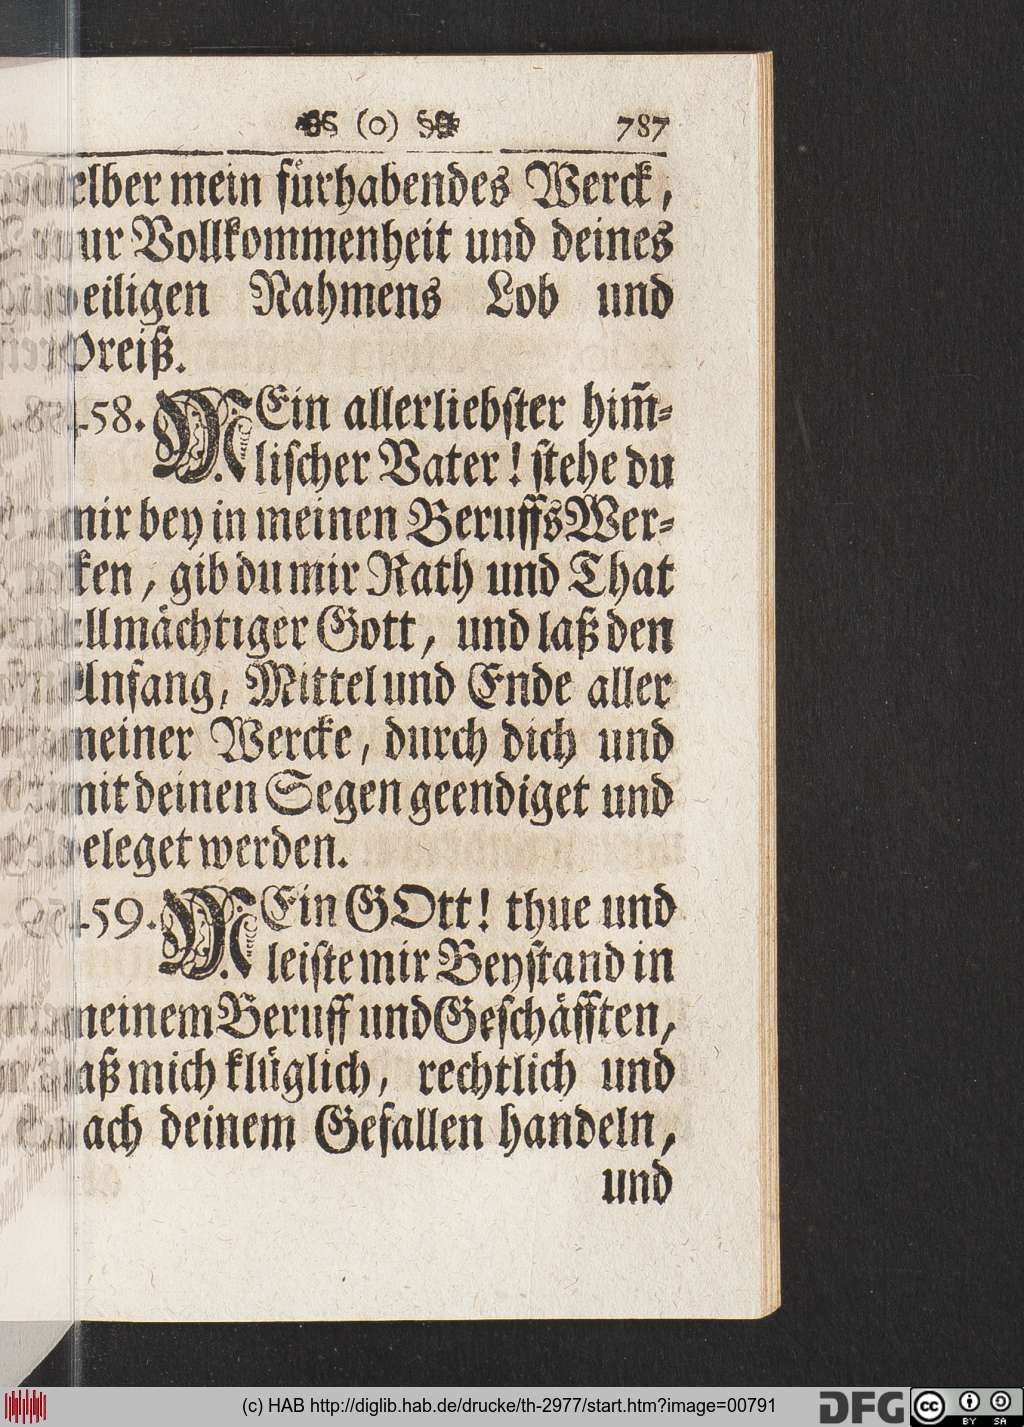 (o) 787
selber mein fürhabendes Werck,
zur Vollkommenheit und deines
heiligen Nahmens Lob und
Preiß.
458. MEin allerliebster him̃-
lischer Vater! stehe du
mir bey in meinen BeruffsWer-
ken, gib du mir Rath und That
allmächtiger Gott, und laß den
Anfang, Mittel und Ende aller
meiner Wercke, durch dich und
mit deinen Segen geendiget und
beleget werden.
459. MEin GOtt! thue und
leiste mir Beystand in
meinem Beruff und Geschäfften,
laß mich klüglich, rechtlich und
nach deinem Gefallen handeln,
und
(c) HAB http://diglib.hab.de/drucke/th-2977/start.htm?image=00791
DFG
cc BY SA